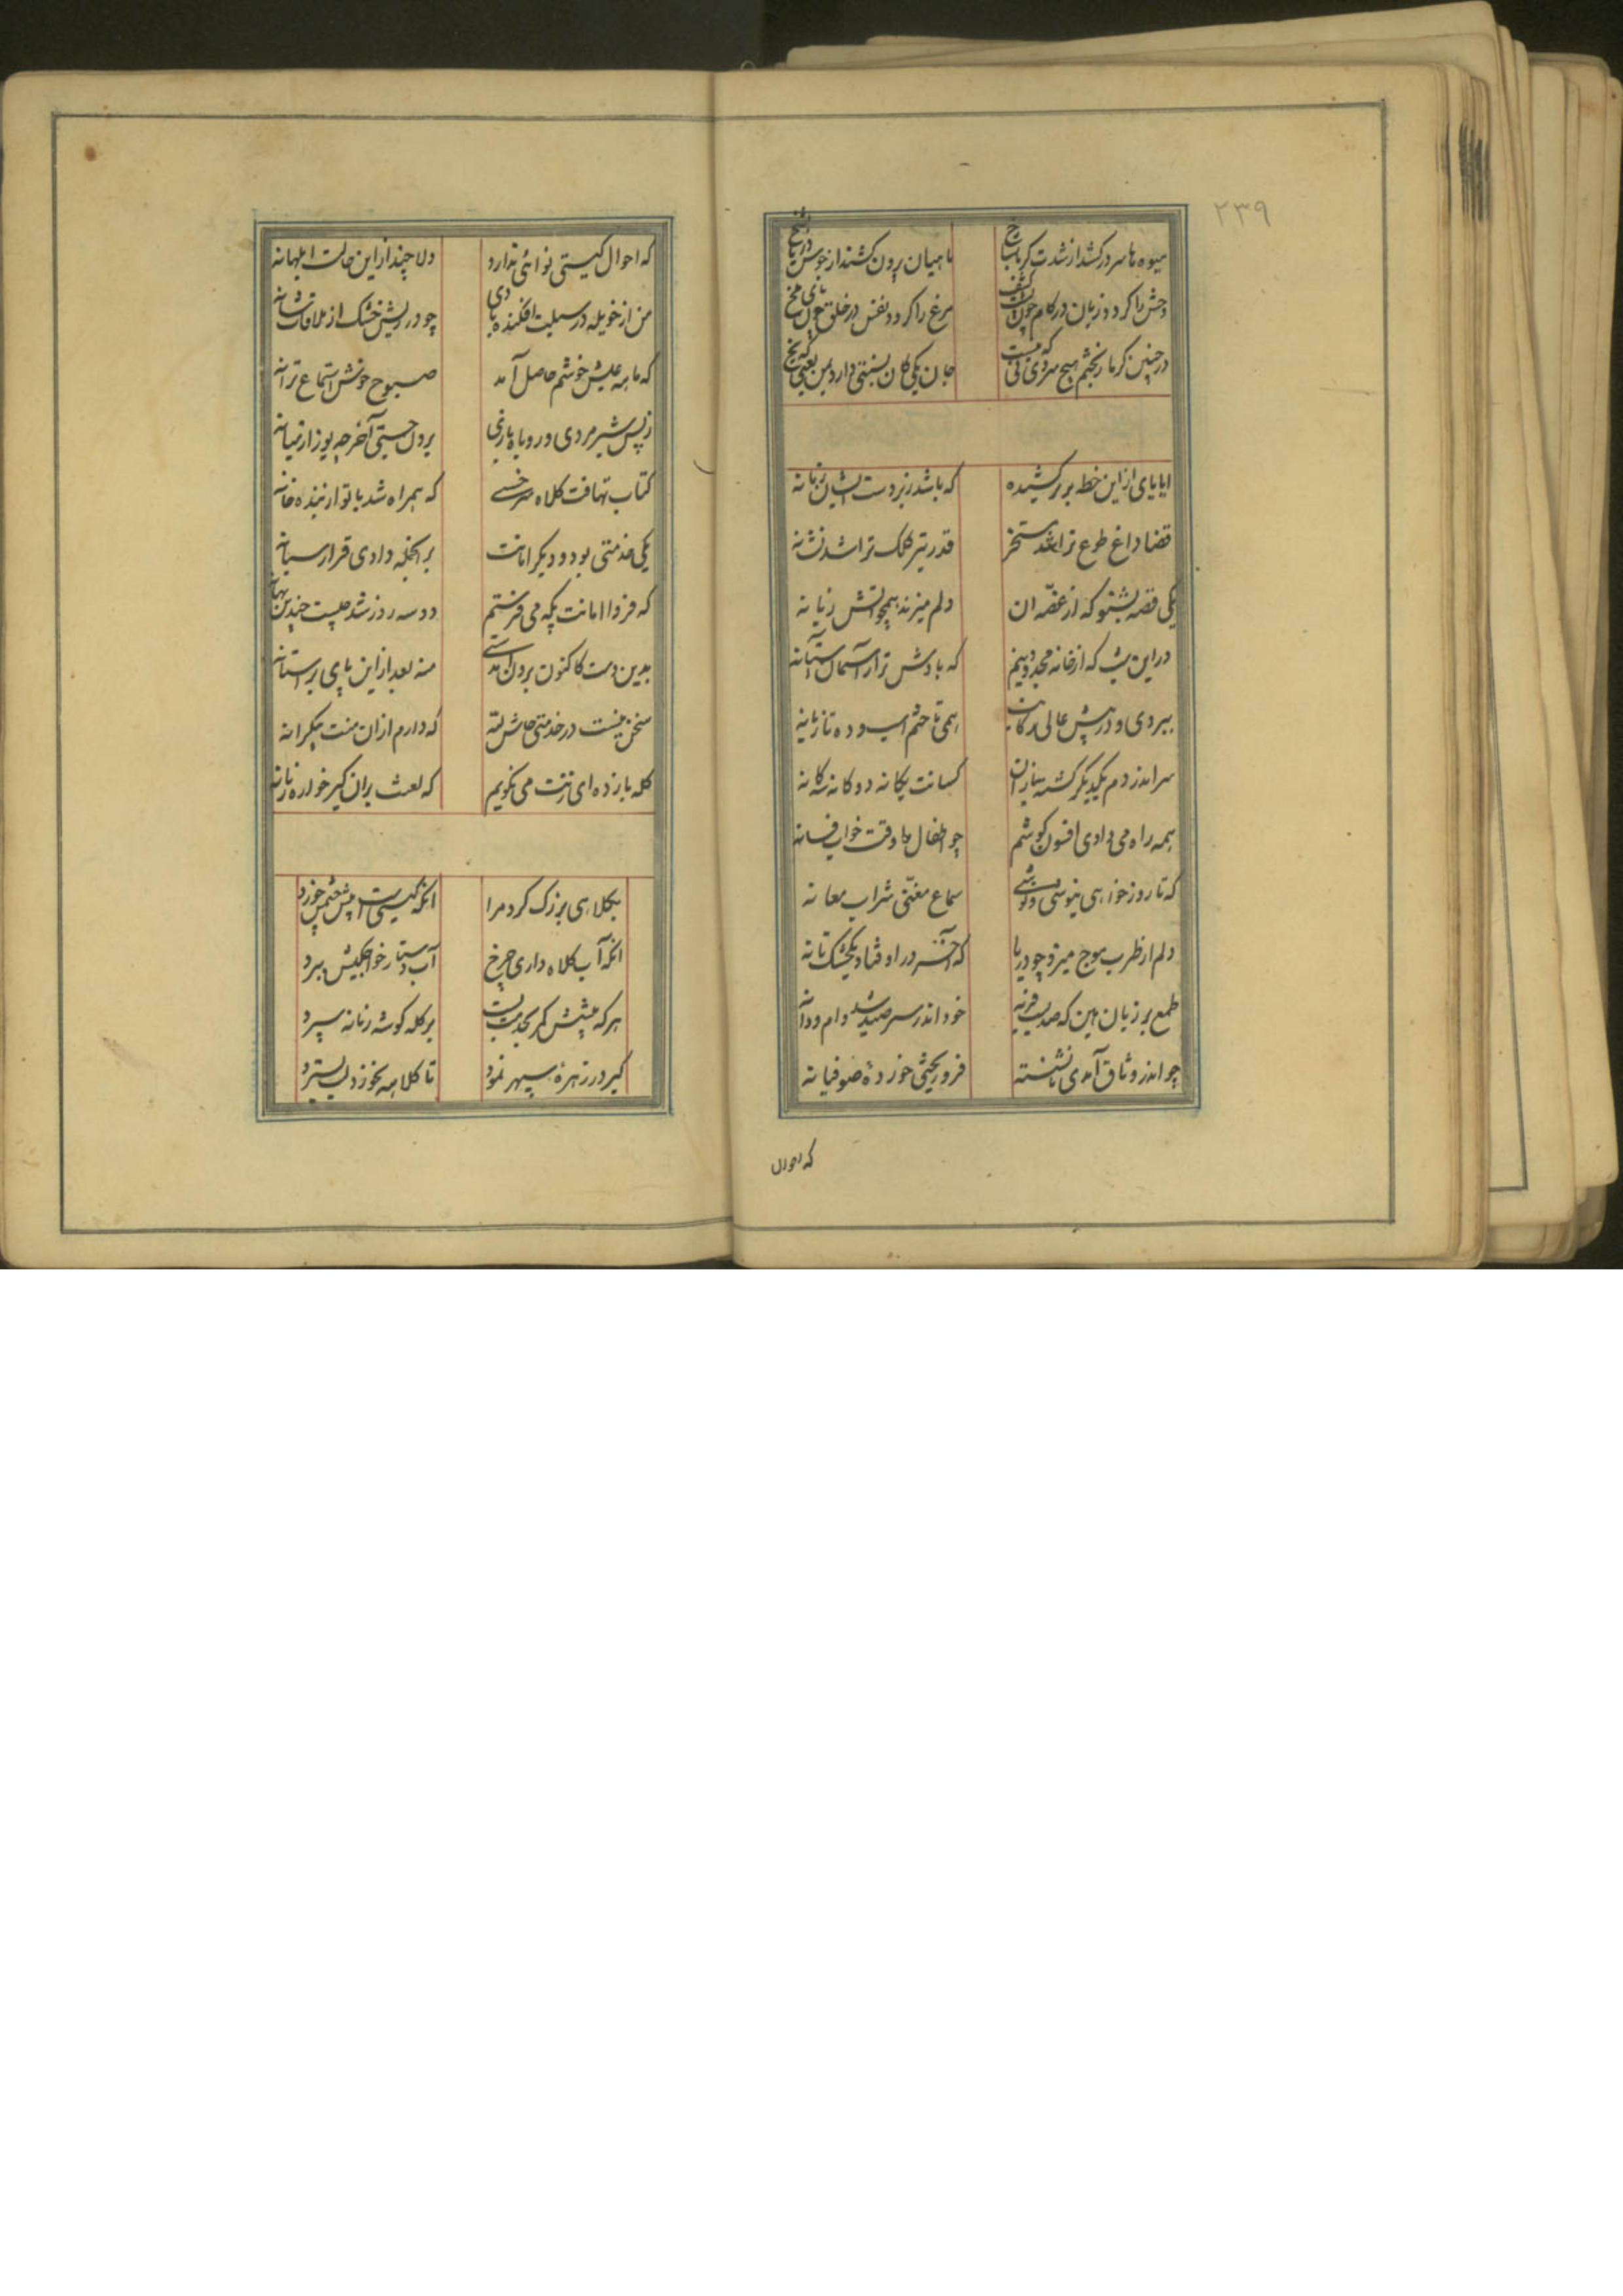 ۲۳۹
میوه ها سر درکشد از شدت کرما بشاخ ماهیان بیرون کشند از جوش دریا
وحش را کردد زبان در کام چون کشف مرغ را کردد نفس در حلق چون بانی مخ
در چنین کرما ز بختم هیچ سردی نی که نیست جان یکی کان بستنی دارد بمن یعنی که یخ
ایا پای از این خط برتر کشیده که باشد زبردست ایشان زمانه
قضا داغ طوع ترا شد مسخر قدر تیر کلک ترا شد نشانه
یکی قصه بشنو که از غصه آن دلم میزند همچو آتش زبانه
در این شب که از خانه مجد دینم که بادش ترا ز آسمان آستانه
ببردی و در پیش عالی رکابت همی تاختم اسب و ده تازیانه
سر اندر دم یکدیگر کشته یازان کسانت یکانه دوکانه سه کانه
همه راه می دادی افسون کوشم چو اطفال را وقت خواب فسانه
که تا روز خواهی نیوشی و نوشی سماع مغنی شراب مغانه
دلم از طرب موج میزد چو دریا که آخر در اوفتاد یکخشک تانه
طمع بر زبان هین که صید فربه خود اندر سر صید شد دام و دانه
چو اندر وثاق آمدی نانشسته فرو ریختی خورده صوفیانه
که احوال
که احوال کیتی نوائی ندارد دلا چند از این حالت ابلهانه
من از خویله در سبلت افکنده بادی چو در ریش خشک از ملاقات شانه
که ما به عیش خوشم حاصل آمد صبوح خوش استماع ترانه
ز پس شیر مردی و روباه بازی برون جستی آخر چو یوز از میانه
کتاب تهافت کلاه سرخسی که همراه شد با تو از بنده خانه
یکی خدمتی بود و دیکر امانت بر اینجمله دادی قرار سبانه
که فردا امانت پکه می فرستم دو سه روز شد چیست چندین بهانه
بدین دست کاکنون برون آمدستی منه بعد از این پای بر آستانه
سخن نیست در خدمتی حاش لله که دارم از ان منت بیکرانه
کله باز ده ای زنت می نکویم که لعنت بران کیر خواره زنانه
بکلاهی بزرک کرد مرا انکه کیتیست پیش چشمش خورد
انکه آب کلاه داری چرخ آب دستار خواجکیش ببرد
هرکه پیشش کمر بخدمت بست بر کله کوشه زمانه سپرد
کیر در زهره سپهر نمود تا کلا به بخورد لب بسترد